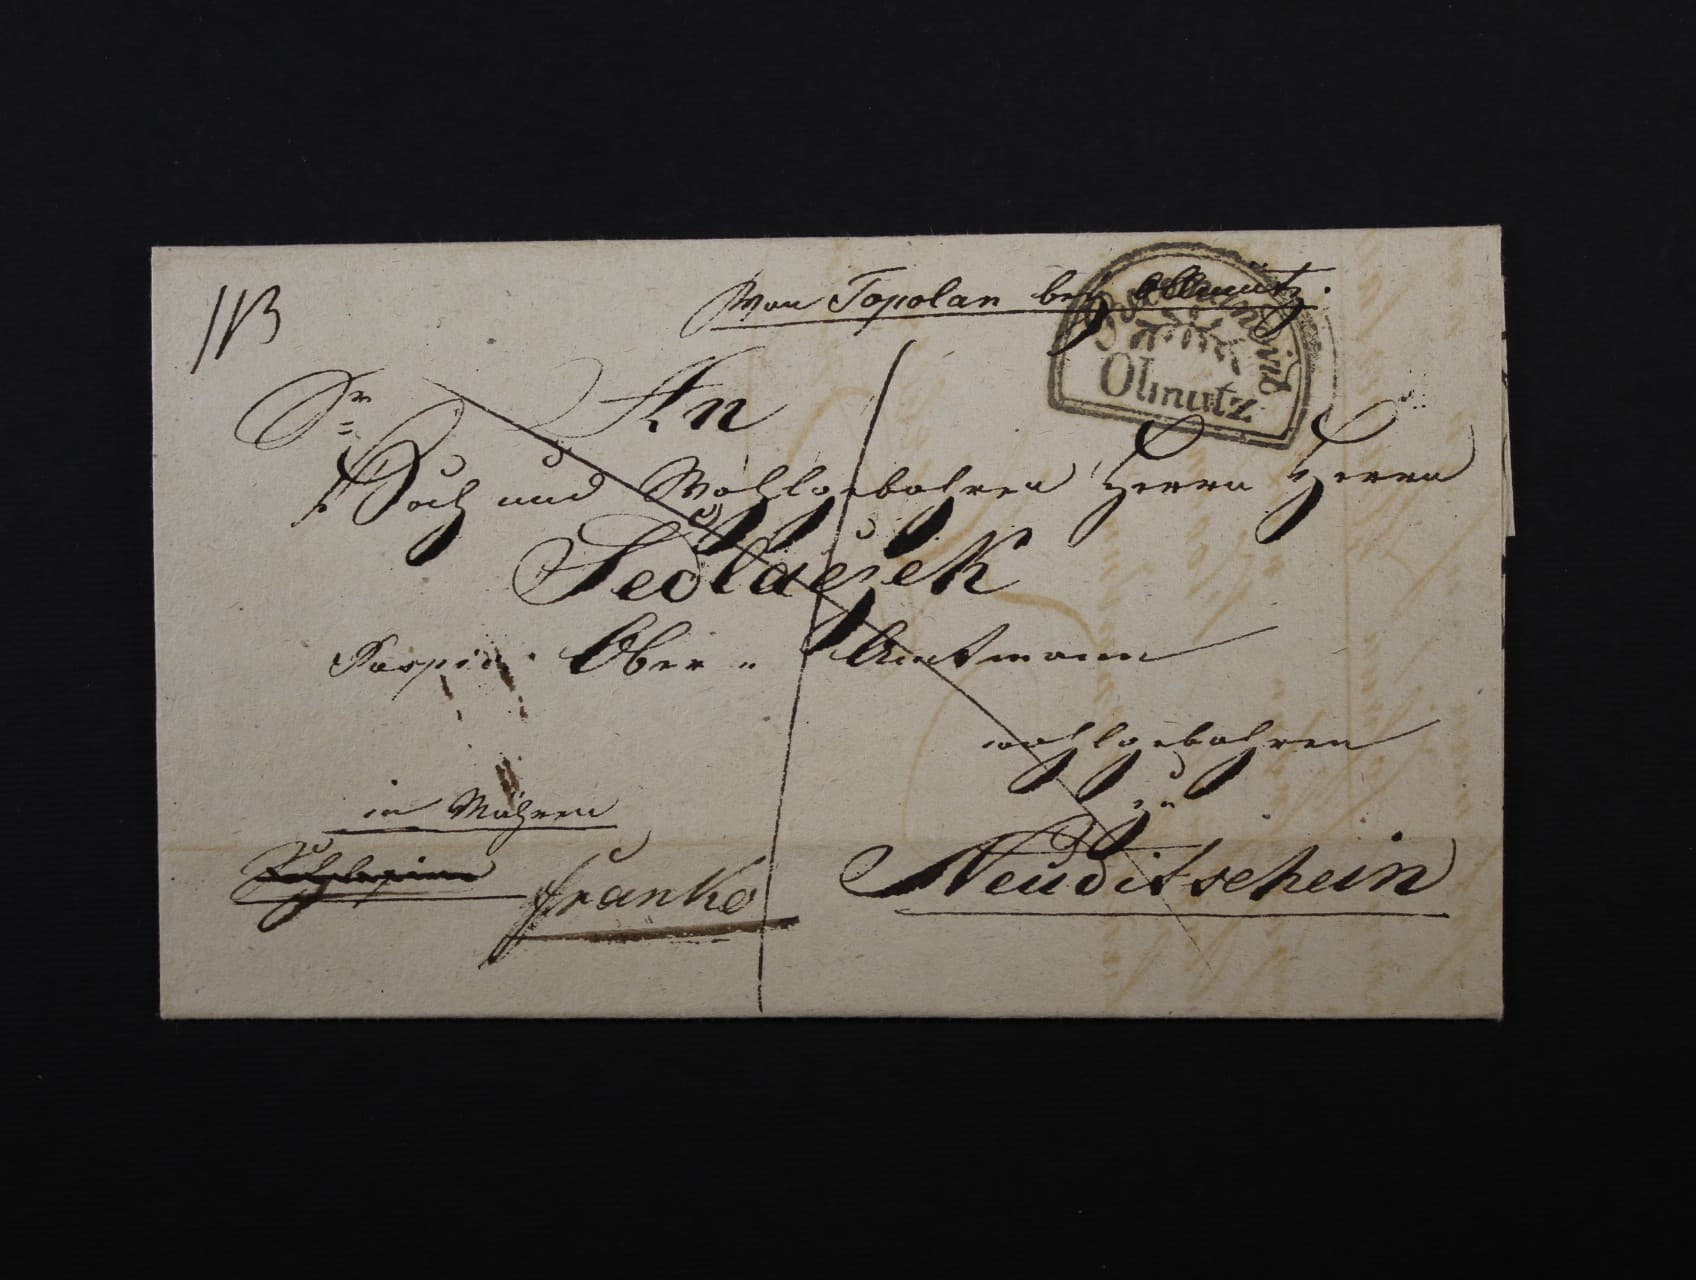 Von Topolan bey Ollmütz.
Olmutz
An
Sr
Hoch und Wohlgebohren Herrn Herrn
Sedlaczek
Ober- Amtmann
wohlgebohren
zu
in Mähren
Neuditschein
franko